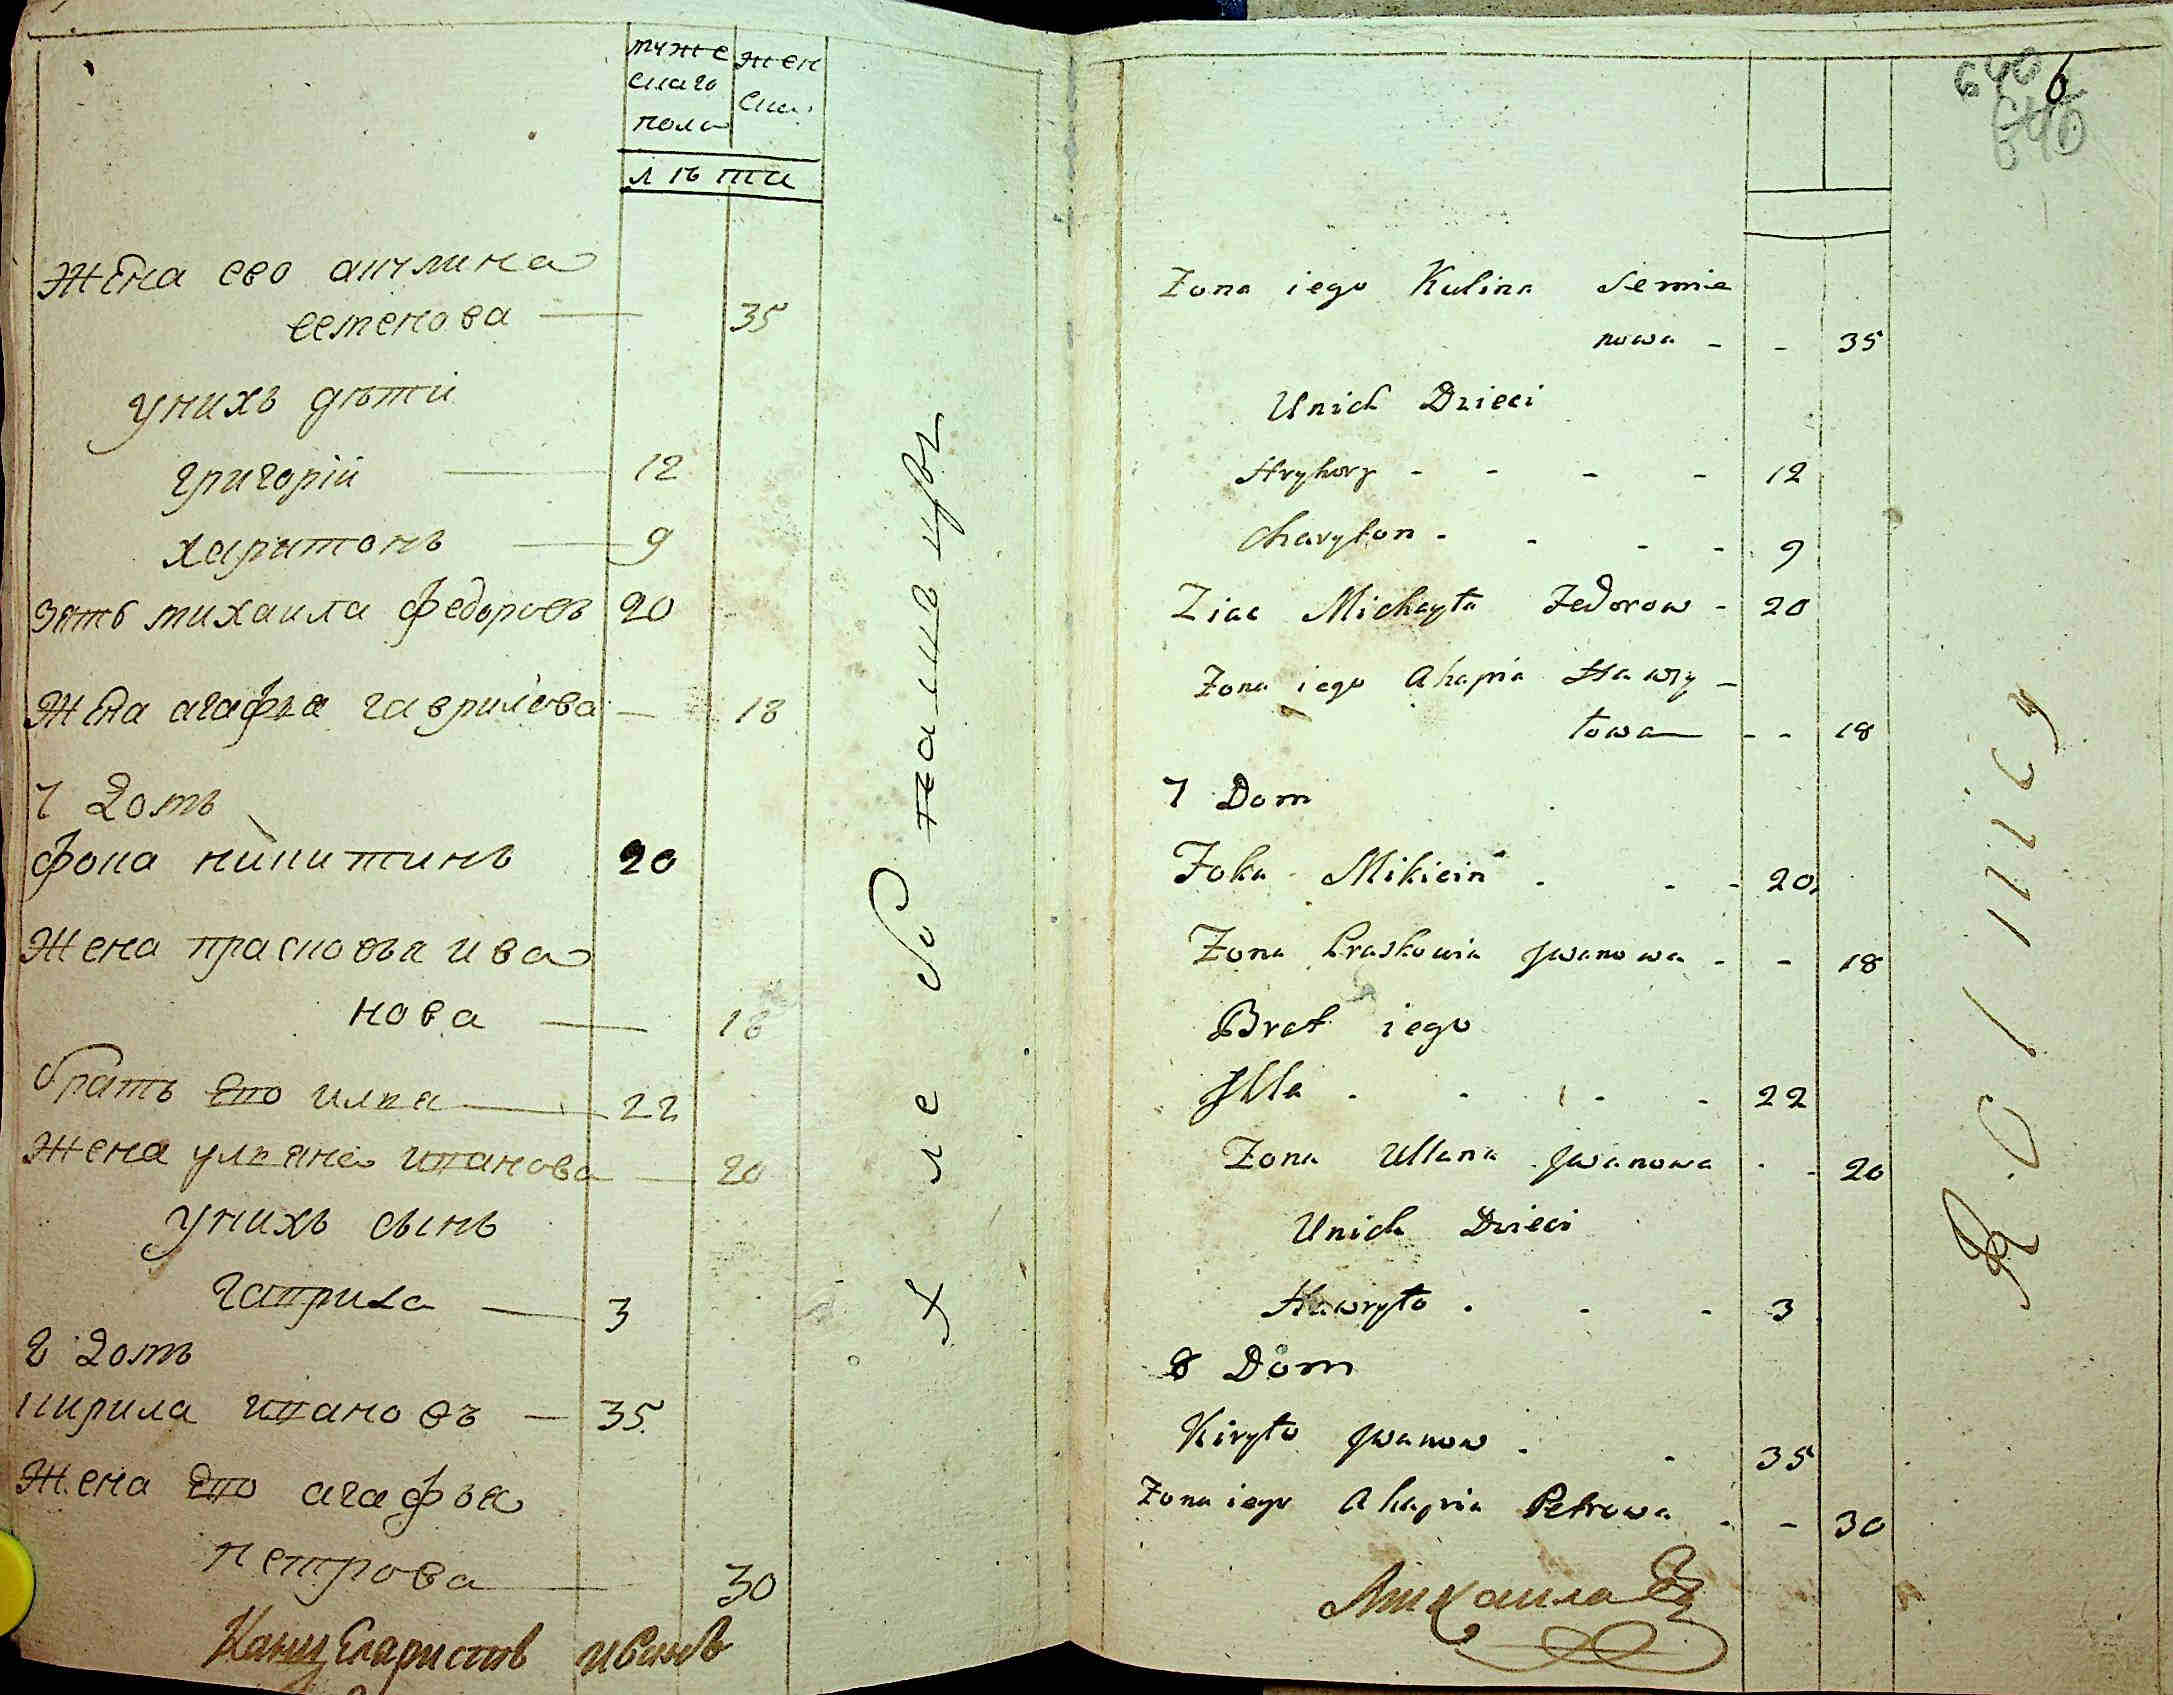 муже жен
скаго ска.
пола
лѣта
Жена ево акулина
семенова — 35
унихъ дѣти
григорій — 12
харитонъ — 9
зять михаила федоровъ 20
Жена агафья гаврилова — 18
7 Домъ
фока никитинъ 20
Жена прасковья ива
нова — 18
братъ ево илья — 22
Жена ульяна иванова — 20
унихъ сынъ
гаврила — 3
8 Домъ
кирила ивановъ — 35
Жена ево агафья
петрова — 30
6
Zona iego Kulina Semie
nowa - - 35
Unich Dzieci
Hryhory - - - - 12
Charyton - - - - 9
Ziac Michayła Fedorow - 20
Zona iego Ahapia Hawry -
łowa - - 18
7 Dom
Foka Mikicin - - - 20
Zona Praskowia Jwanowa - - 18
Brat iego
Jlla - - - - 22
Zona Ullana Jwanowa - - 20
Unich Dzieci
Hawryło - - - 3
8 Dom
Kiryło Jwanow - - 35
Zona iego Ahapia Petrowa - - 30
Михаила